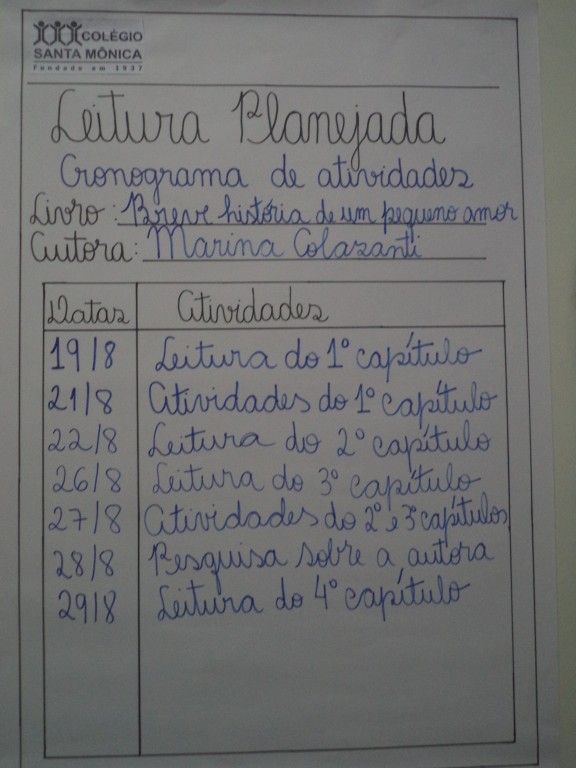 COLÉGIO
SANTA MÔNICA
Fundado em 1937
Leitura Planejada
Cronograma de atividades
Livro: Breve história de um pequeno amor
Autora: Marina Colasanti
Datas Atividades
19/8 Leitura do 1º capítulo
21/8 Atividades do 1º capítulo
22/8 Leitura do 2º capítulo
26/8 Leitura do 3º capítulo
27/8 Atividades do 2º e 3º capítulos
28/8 Pesquisa sobre a autora
29/8 Leitura do 4º capítulo